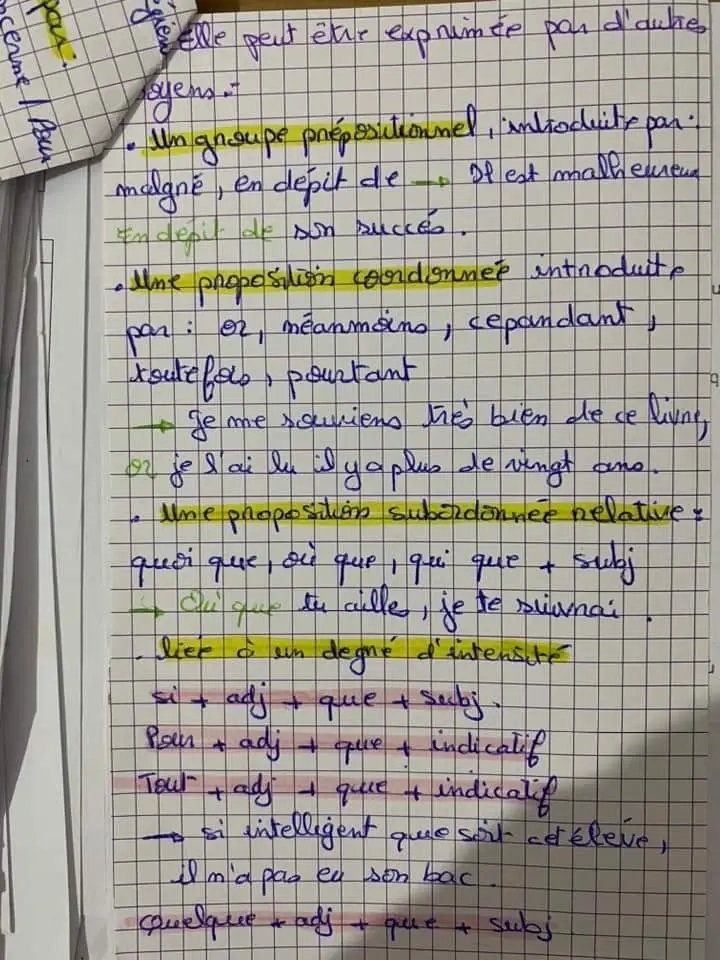 par.
cerme / Pour
Elle peut être exprimée par d'autres
oyens :
. Un groupe prépositionnel, introduite par :
malgré, en dépit de → Il est malheureux
En dépit de son succés.
. Une proposition coordonnée introduite
par : or, néanmoins, cepandant,
toutefois, pourtant
→ Je me souviens très bien de ce livre,
or je l'ai lu il y a plus de vingt ans.
. Une proposition subordonnée relative :
quoi que, où que, qui que + subj
→ Où que tu ailles, je te suivrai.
. liée à un degré d'intensité
si + adj + que + subj.
Pour + adj + que + indicatif
Tout + adj + que + indicatif
→ si intelligent que soit cet élève,
il n'a pas eu son bac.
Quelque + adj + que + subj